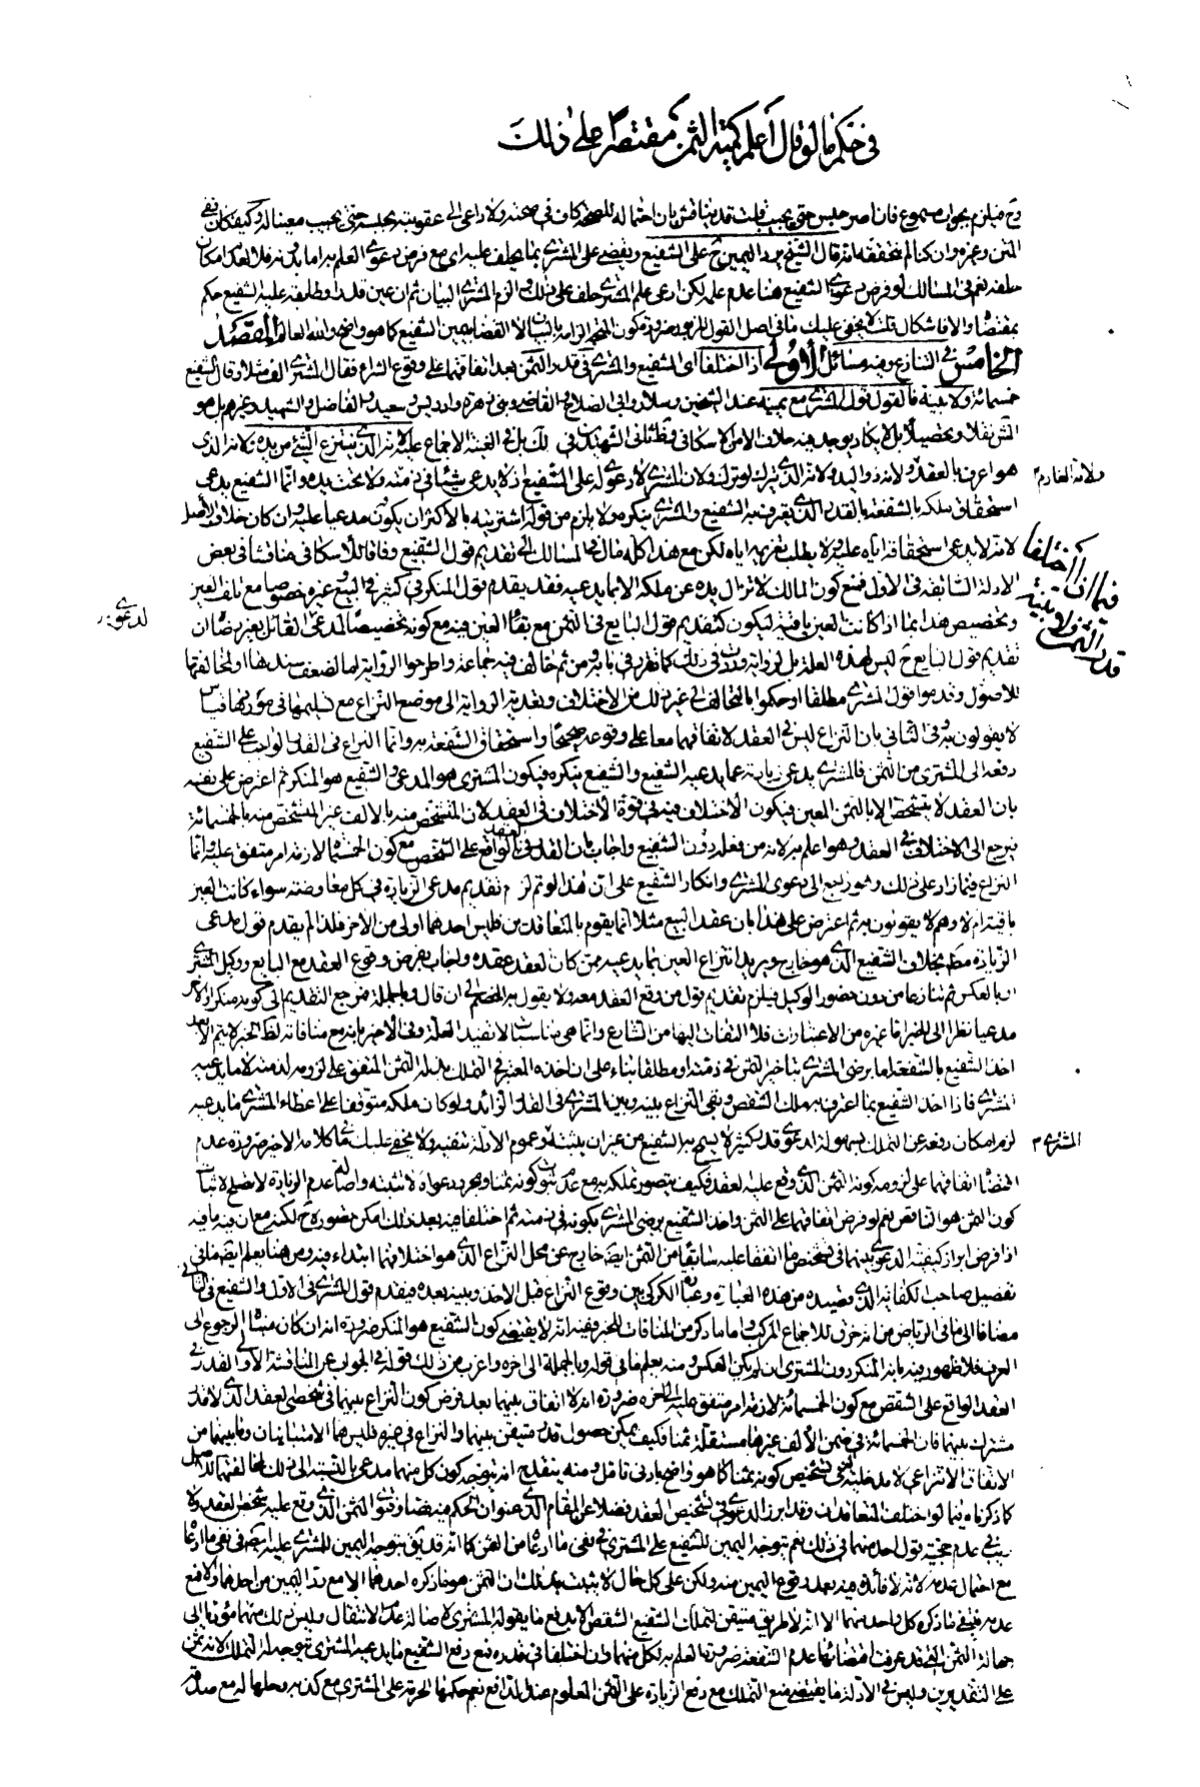 في حكم ما لو قال أعلم كمية الثمن مقتصرا على ذلك
وح فيلزم بجواب مسموع فان اصر حبس حتى يجيب قلت قد يناقش بان احتماله للصحة كاف في صحته ولا داعي الى عقوبته بحبسه حتى يجيب
حلفه نعم في المسالك لو فرض دعوى الشفيع هنا عدم علمه لكن ادعى علم المشترى حلف على ذلك والزم المشترى البيان ثم ان عين قدرا وطلقه عليه الشفيع حكم
بمقتضاه والا فاشكال قلت لا يخفى عليك ما في اصل القول المزبور ضرورة كون المتجه الزامه بالبيان لا القضاء بيمين الشفيع كما هو واضح والله العالم المقصد
الخامس في التنازع وفيه مسائل الاولى اذا اختلفا اى الشفيع والمشترى في قدر الثمن بعد اتفاقهما على وقوع الشراء فقال المشترى الف مثلا وقال الشفيع
خمسمائة ولا بينة فالقول قول المشترى مع يمينه عند الشيخين وسلار وابى الصلاح والقاضى وبني زهرة وادريس وسعيد والفاضل والشهيد وغيرهم بل هو
هو اعرف بالعقد ولانه ذو اليد ولانه الذى يترك لو ترك ولان المشترى لا دعوى له على الشفيع اذ لا يدعى شيئا في ذمته ولا تحت يده وانما الشفيع يدعى
ولانه الغارم م
استحقاق ملكه بالشفعة بالقدر الذى يعترف به الشفيع والمشترى ينكره ولا يلزم من قوله اشتريته بالاكثر ان يكون مدعيا عليه وان كان خلاف الاصل
لانه لا يدعى استحقاقه اياه عليه ولا يطلب تغريمه اياه لكن مع هذا كله مال في المسالك الى تقديم قول الشفيع وفاقا للاسكافي مناقشا في بعض
فيما اذا اختلفا
في قدر الثمن ولا بينة
الادلة السابقة في الاول فمنع كون المالك لا تزال يده عن ملكه الا بما يدعيه فقد يقدم قول المنكر في كثير في البيع وغيره خصوصا مع تلف العين
وتخصيص هذا بما اذا كانت العين باقية ليكون كتقديم قول البايع في الثمن مع بقاء العين فيه مع كونه تخصيصا لمدعى القائل بغير رضاه ان
لدعوى
تقديم قول البايع ح ليس لهذه العلة بل لرواية وردت في ذلك كما تقرر في بابه ومن ثم خالف فيه جماعة واطرحوا الرواية اما لضعف سندها او لمخالفتها
للاصول وقدموا قول المشترى مطلقا او حكموا بالتحالف الى غير ذلك من الاختلاف وتعدية الرواية الى موضع النزاع مع تسليمها في موردها قياس
لا يقولون به وفي الثاني بان النزاع ليس في العقد لاتفاقهما معا على وقوعه صحيحا واستحقاق الشفعة به وانما النزاع في القدر الواجب على الشفيع
دفعه الى المشترى من الثمن فالمشترى يدعى زيادة عما يدعيه الشفيع والشفيع ينكره فيكون المشترى هو المدعى والشفيع هو المنكر ثم اعترض على نفسه
بان العقد لا يتشخص الا بالثمن المعين فيكون الاختلاف فيه في قوة الاختلاف في العقد لان المتشخص منه بالالف غير المتشخص منه بالخمسمائة
فيرجع الى الاختلاف في العقد وهو اعلم به لانه من فعله دون الشفيع واجاب بان القدر في العقد الواقع على الشقص مع كون الخمسمائة لازمة امر متفق عليه وانما
النزاع فيما زاد على ذلك وهو راجع الى دعوى المشترى وانكار الشفيع على ان هذا لو تم لزم تقديم مدعى الزيادة في كل معاوضة سواء كانت العين
باقية ام لا وهم لا يقولون به ثم اعترض على هذا بان عقد البيع مثلا انما يقوم بالمتعاقدين فليس احدهما اولى من الاخر فلذا لم يقدم قول مدعى
الزيادة مط بخلاف الشفيع الذى هو خارج ويريد انتزاع العين بما يدعيه ممن كان العقد عقده واجاب بفرض وقوع العقد مع البايع ووكيل المشترى
او بالعكس ثم تنازعا من دون حضور الوكيل فيلزم تقديم قول من وقع العقد معه ولا يقول به الخصم الى ان قال وبالجملة مرجع التقديم الى كونه منكرا والاخر
مدعيا نظرا الى الخبر اما غيره من الاعتبارات فلا التفات اليها من الشارع وانما هي مناسبات لا تفيد العلة وفي الاخير بانه مع منافاته لظ الخبر لا يتم الا بعد
اخذ الشفيع بالشفعة اما برضى المشترى بتاخير الثمن في ذمته او مطلقا بناء على ان اخذه المعتبر في التملك بذله الثمن المتفق على لزومه له منه لا ما يدعيه
المشترى فاذا اخذ الشفيع بما اعترف به ملك الشقص وبقى النزاع بينه وبين المشترى في القدر الزائد ولو كان ملكه متوقفا على اعطاء المشترى ما يدعيه
المشترى م
لزم امكان دفعه عن التملك بسهولة اذ دعوى قدر كثير لا يسمح به الشفيع من غير ان يثبته وعموم الادلة تنفيه ولا يخفى عليك ما في كلامه الاخير ضرورة عدم
اقتضاء اتفاقهما على لزومه كونه الثمن الذى وقع عليه العقد فكيف يتصور تملكه به مع عدم ثبوت كونه ثمنا ومجرد دعواه لا تثبته واصالة عدم الزيادة لا تصلح لاثبات
كون الثمن هو الناقص نعم لو فرض اتفاقهما على الثمن واخذ الشفيع برضى المشترى بكونه في ذمته ثم اختلفا فيه بعد ذلك امكن حضوره ح لكنه مع ان فيه ما فيه
اذا فرض ابراز كيفية الدعوى بينهما في تشخيص ما اتفقا عليه سابقا من الثمن ايض خارج عن محل النزاع الذى هو اختلافهما ابتداء فيه ومن هنا يعلم ايض ما في
تفصيل صاحب الكفاية الذى وعبارة الكركي بين وقوع النزاع قبل الاخذ وبينه بعده فيقدم قول المشترى في الاول والشفيع في الثاني
مضافا الى ما في الرياض من انه خرق للاجماع المركب واما ما ذكره من المنافات للخبر ففيه انه لا يقتضى كون الشفيع هو المنكر ضرورة انه ان كان مبناه الرجوع الى
العرف فلا ظهور فيه بانه المنكر دون المشترى ان لم يكن العكس ومنه يعلم ما في قوله وبالجملة الى اخره واغرب من ذلك قوله في الجواب عن المناقشة الاولى القدر في
العقد الواقع على الشقص مع كون الخمسمائة لازمة امر متفق عليه الى اخره ضرورة انه لا اتفاق بينهما بعد فرض كون النزاع بينهما في شخصي العقد الذى لا قدر
مشترك بينهما فان الخمسمائة في ضمن الالف غيرها مستقلة ثمنا فكيف يمكن حصول قدر متيقن بينهما والنزاع في غيره فليس هما الا متباينان وما بينهما من
الاتفاق الانتزاعي لا مدخلية له في تشخيص كونه ثمنا كما هو واضح بادنى تامل ومنه ينقدح انه يتوجه كون كل منهما مدعى بالنسبة الى ذلك لمخالفتهما الاصل
كما ذكرناه فيما لو اختلف المتعاقدان وقد ابرزا الدعوى في تشخيص العقد فضلا عن المقام الذى عنوان الحكم فيه الثمن الذى وقع عليه شخص العقد ولا
ريب في عدم حجية قول احد منهما في ذلك نعم يتوجه اليمين للشفيع على المشترى في نفى ما ادعاه من الثمن كما انه قد يق بتوجه اليمين للمشترى عليه ايض في نفى ما ادعاه
مع احتمال عدمه لانه لا فائدة فيه بعد وقوع اليمين منه ولكن على كل حال لا يثبت بذلك ان الثمن هو ما ذكره احدهما الا مع رد اليمين من احدهما ولا مع
عدمه فينتفى ما ذكره كل واحد منهما الا انه لا طريق متيقن لتملك الشفيع الشقص الا بدفع ما يقوله المشترى لاصالة عدم الانتقال وليس ذلك منهما مؤديا الى
جهالة الثمن التى قد عرفت اقتضائها عدم الشفعة ضرورة العلم به لكل منهما وان اختلفا في قدره فمع دفع الشفيع ما يدعيه المشترى يتوجه له التملك لانه ثمن
على التقديرين وليس في الادلة ما يقتضى منع التملك مع دفع الزيادة على الثمن المعلوم عند الدافع نعم حكمها الحرمة على المشترى مع كذبه وحلها له مع صدقه